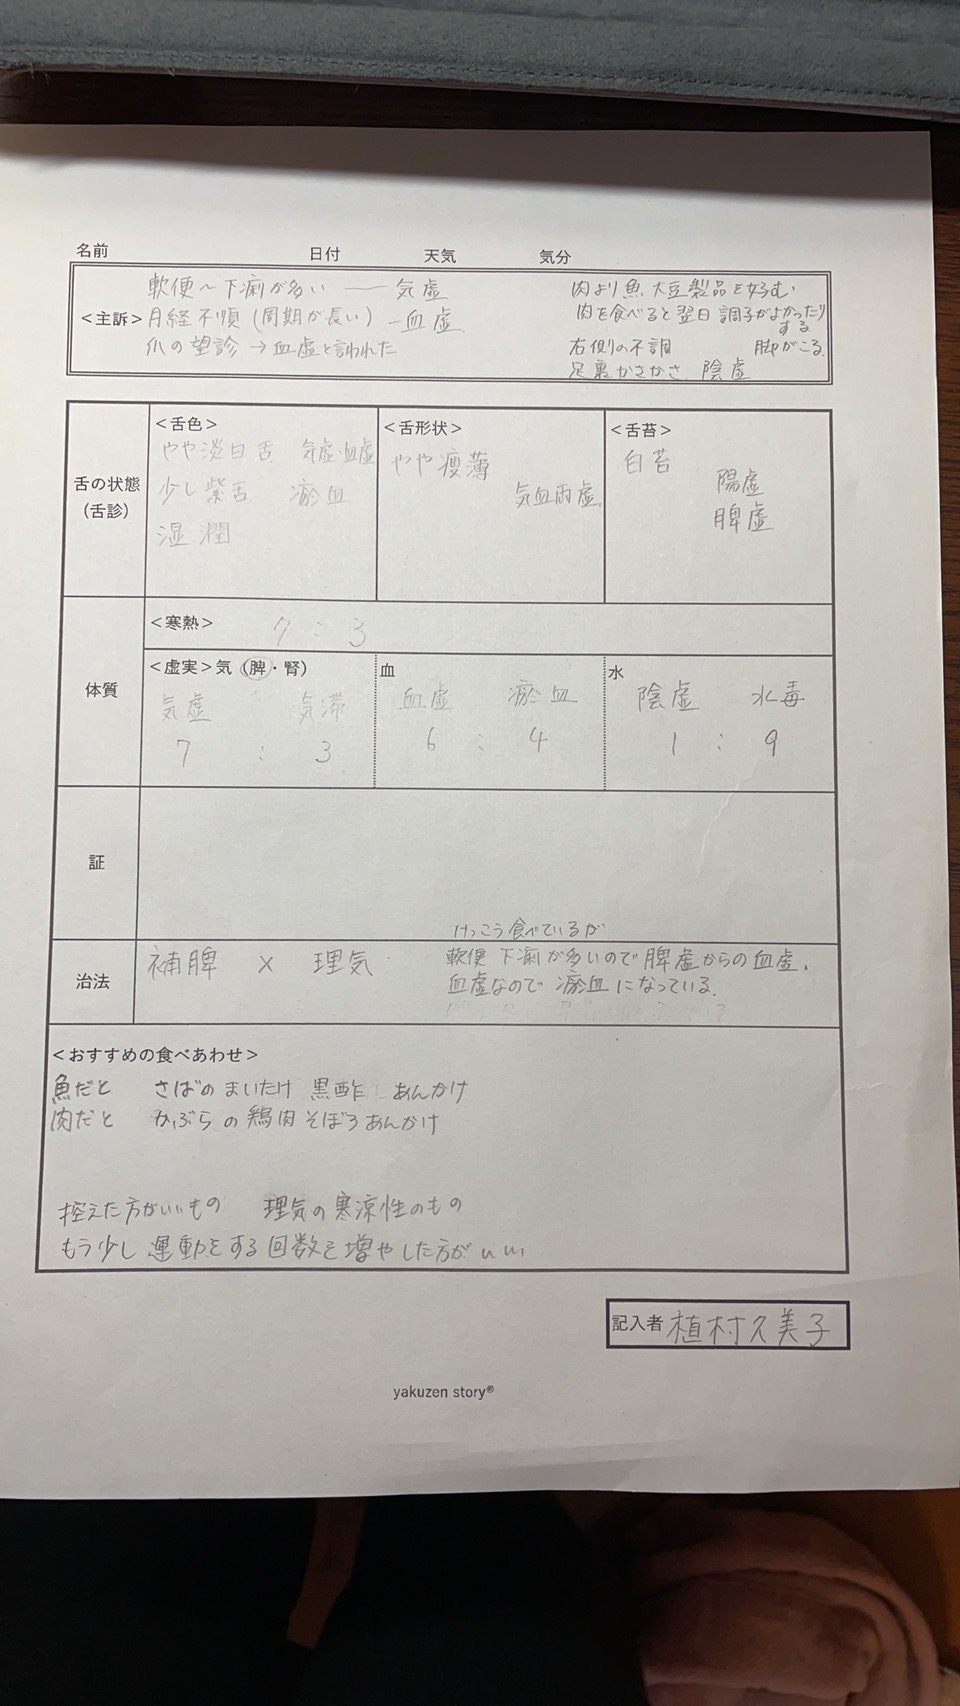 名前 日付 天気 気分
軟便～下痢が多い — 気虚
<主訴> 月経不順 (周期が長い) - 血虚
爪の望診 → 血虚と言われた
肉より魚 大豆製品を好む
肉を食べると翌日 調子がよかったり
する
右側の不調 脚がこる
足裏かさかさ 陰虚
舌の状態
(舌診)
<舌色>
やや淡白舌 気虚・血虚
少し紫舌 瘀血
湿潤
<舌形状>
やや痩薄
気血両虚
<舌苔>
白苔
陽虚
脾虚
体質
<寒熱> 7 : 3
<虚実> 気 (脾・腎)
気虚 気滞
7 : 3
血
血虚 瘀血
6 : 4
水
陰虚 水毒
1 : 9
証
治法
補脾 × 理気
けっこう食べているが
軟便 下痢が多いので脾虚からの血虚。
血虚なので瘀血になっている。
<おすすめの食べあわせ>
魚だと さばのまいたけ 黒酢 あんかけ
肉だと かぶらの鶏肉そぼろあんかけ
控えた方がいいもの 理気の寒涼性のもの
もう少し運動をする回数を増やした方がいい
記入者 植村久美子
yakuzen story®